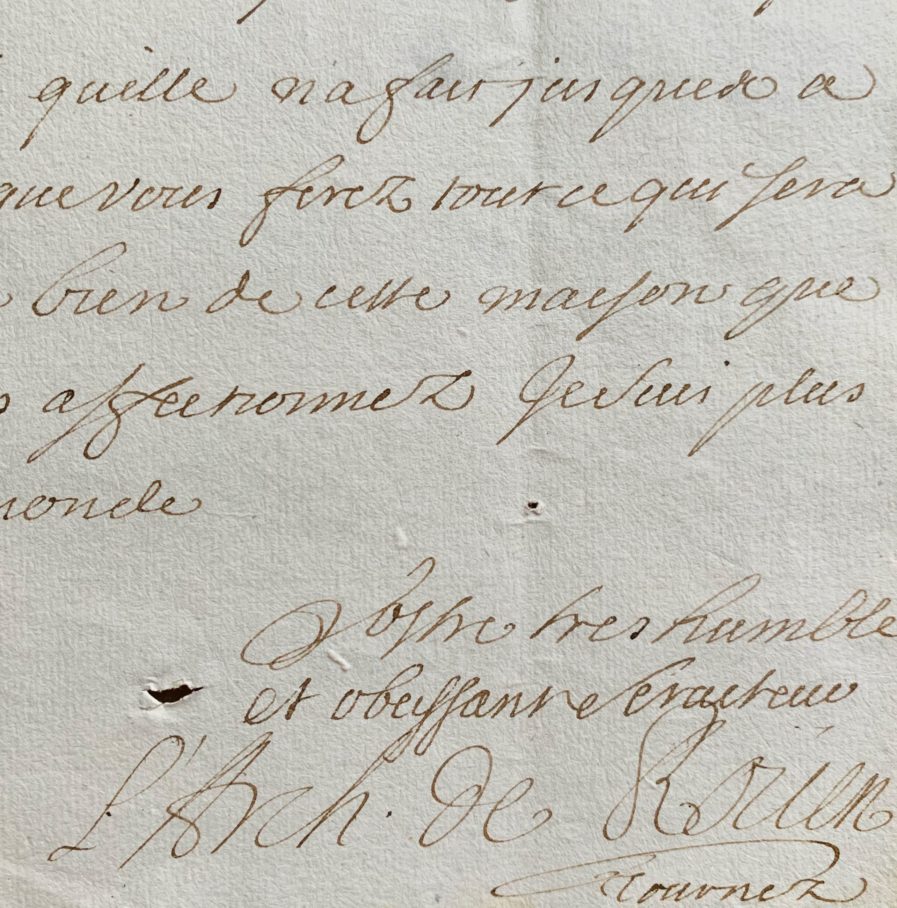 qu'elle n'a fait jusques a
que vous ferez tout ce qui sera
bien de cette maison que
affectionnez Je suis plus
monde
Vostre tres humble
et obeissant serviteur
L'Arch. de Roüen
tournez